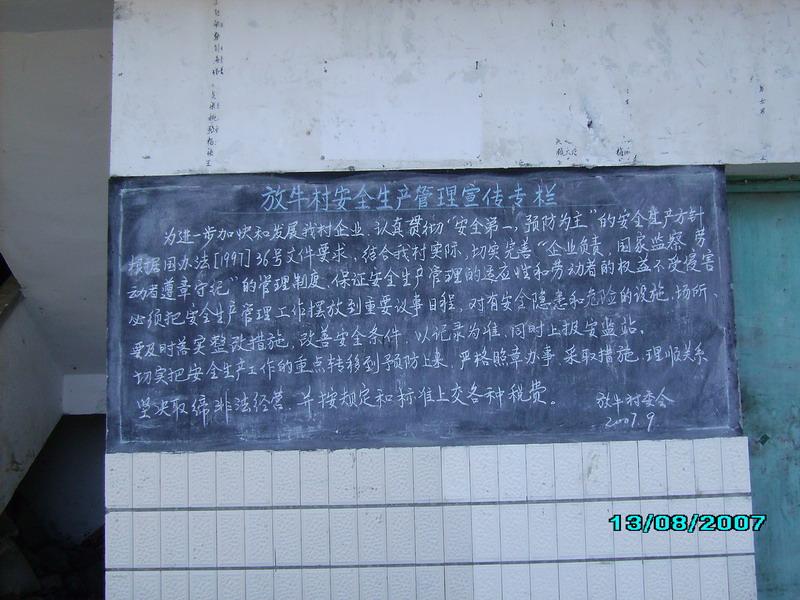 放牛村安全生产管理宣传专栏
为进一步加快和发展我村企业，认真贯彻“安全第一，预防为主”的安全生产方针
根据国办法[1997]36号文件要求，结合我村实际，切实完善“企业负责，国家监察，劳
动者遵章守纪”的管理制度，保证安全生产管理的适应性和劳动者的权益不受侵害
必须把安全生产管理工作摆放到重要议事日程，对有安全隐患和危险的设施、场所、
要及时落实整改措施，改善安全条件，以记录为准，同时上报安监站。
切实把安全生产工作的重点转移到预防上来，严格照章办事，采取措施，理顺关系
坚决取缔非法经营，并按规定和标准上交各种税费。
放牛村委会
2007.9
13/08/2007